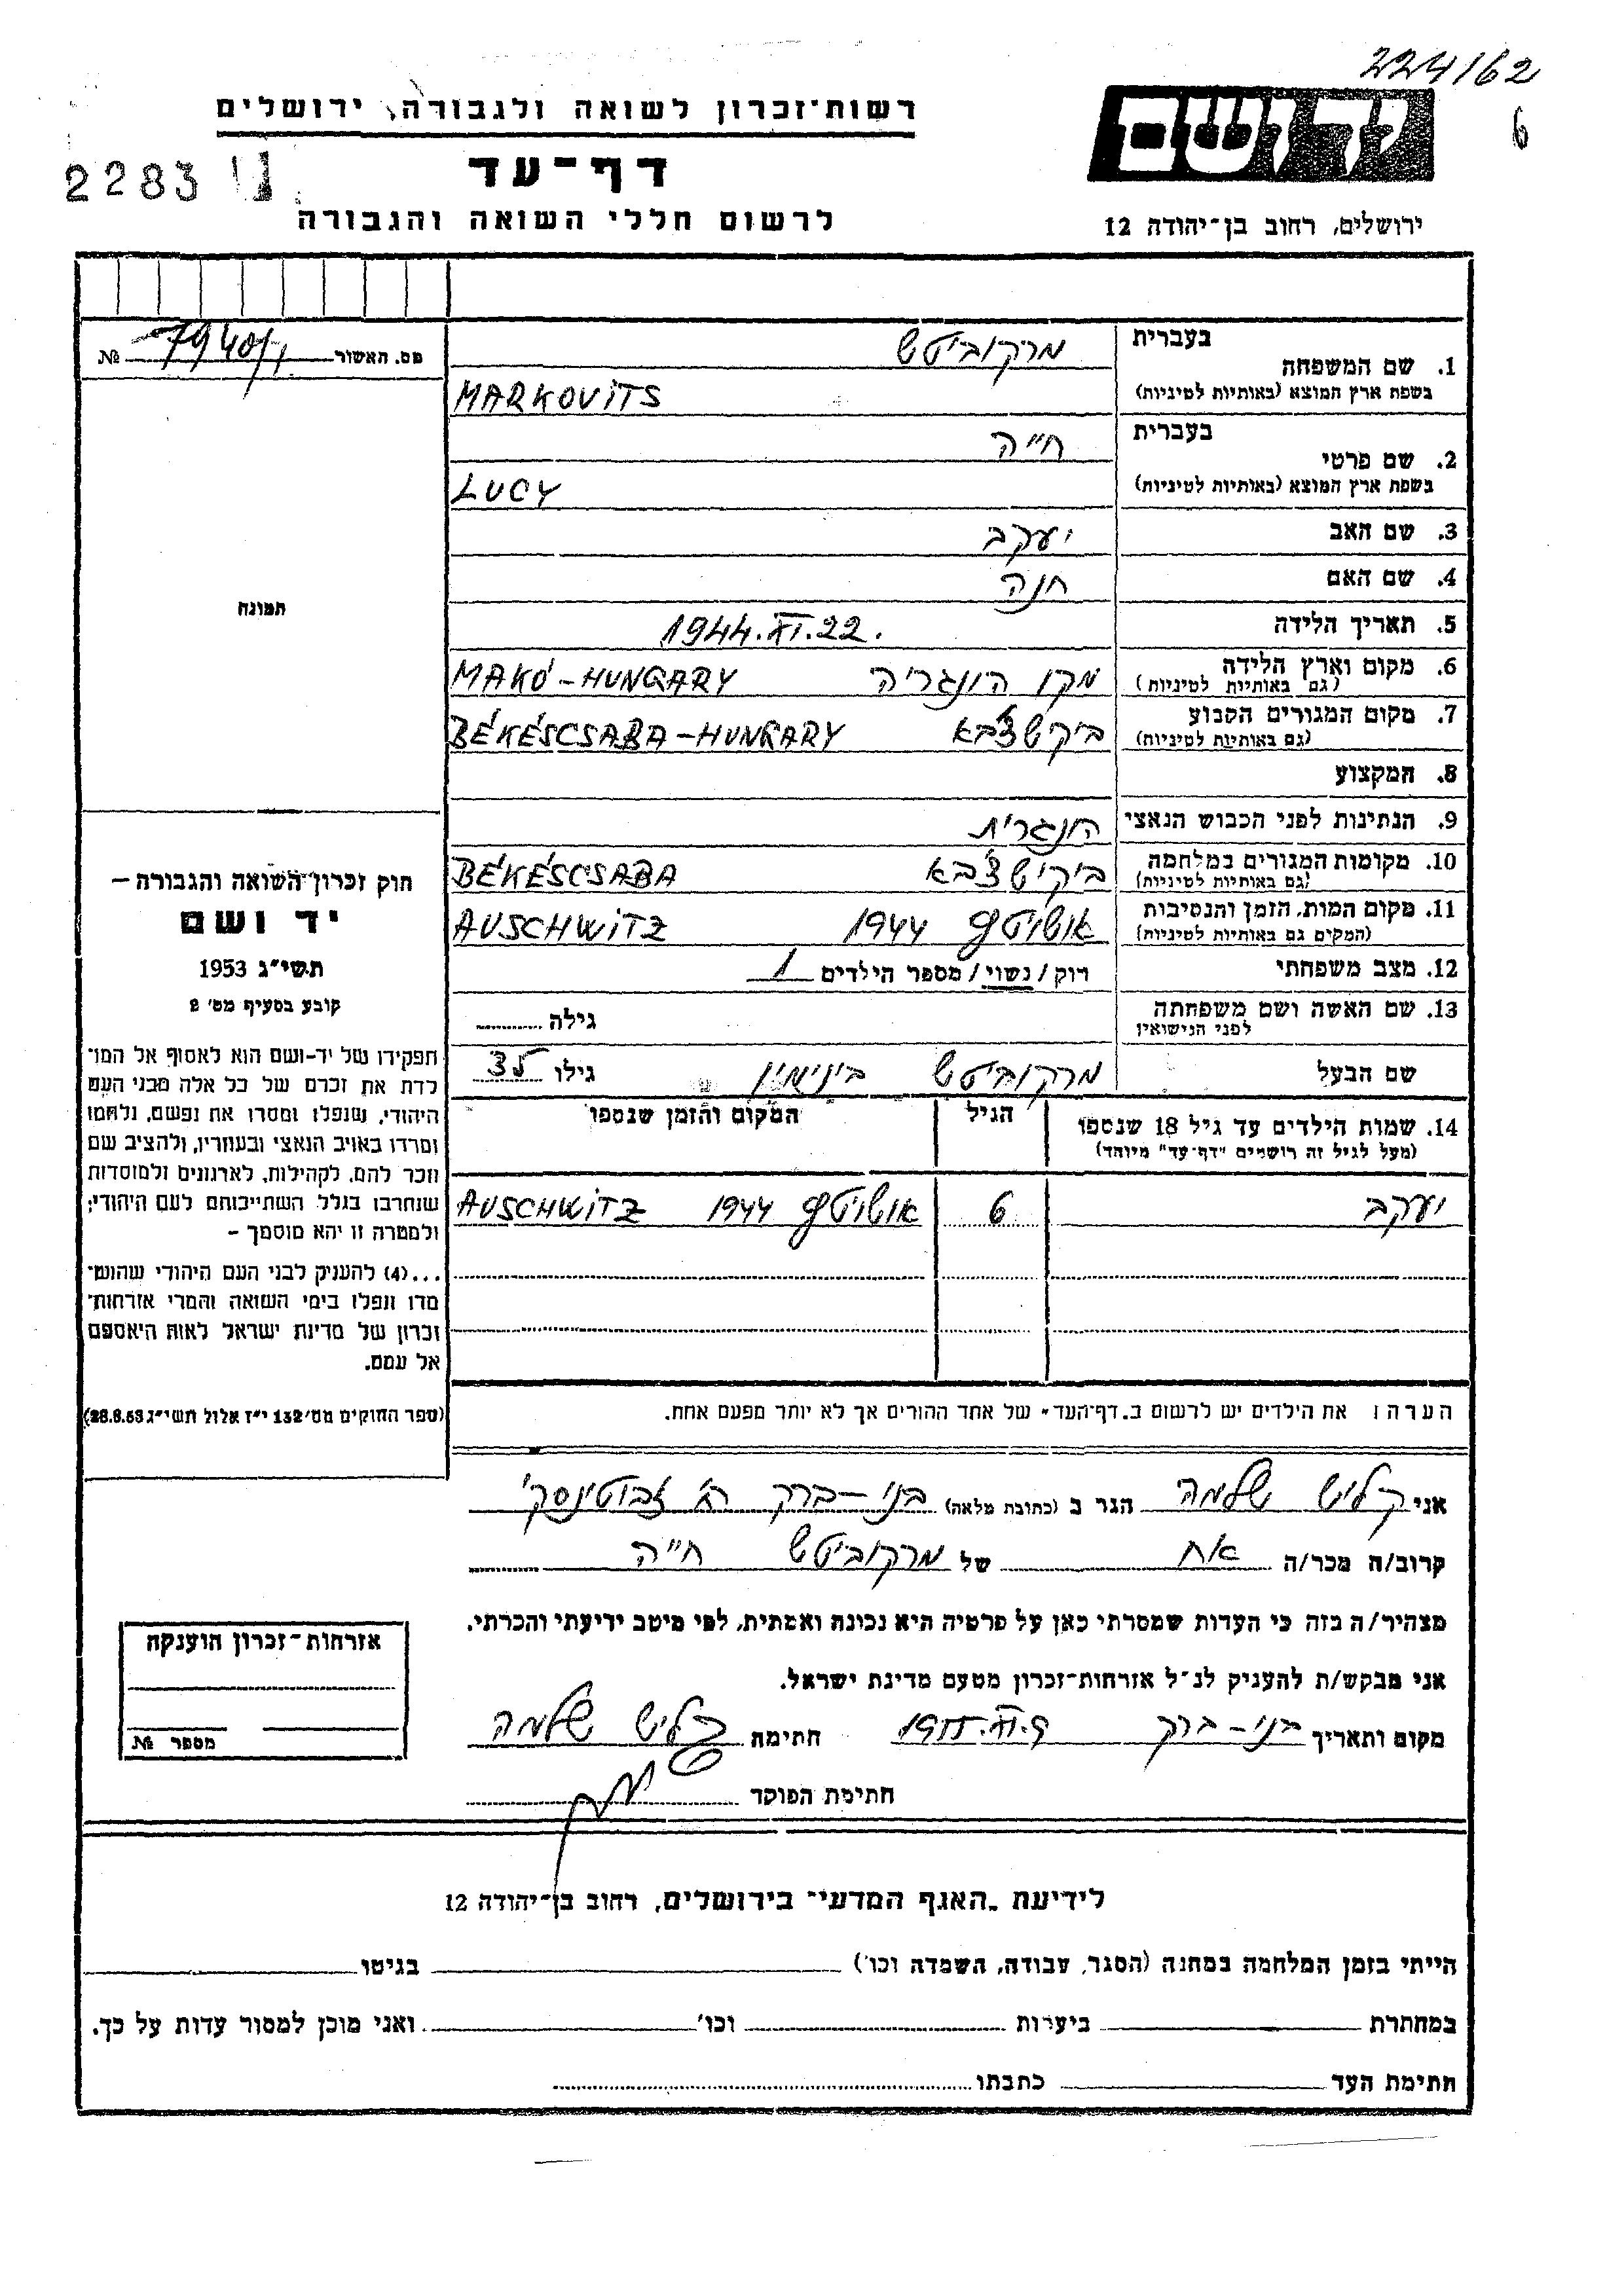 224/62
6
יד ושם
ירושלים, רחוב בן־יהודה 12
רשות־זכרון לשואה ולגבורה, ירושלים
דף־עד
לרשום חללי השואה והגבורה
2283
מס. האשור 7940/1 №
תמונה
1. שם המשפחה
בעברית מרקוביטש
בשפת ארץ המוצא (באותיות לטיניות) MARKOVITS
2. שם פרטי
בעברית חייה
בשפת ארץ המוצא (באותיות לטיניות) LUCY
3. שם האב יעקב
4. שם האם חנה
5. תאריך הלידה 1944.XI.22.
6. מקום וארץ הלידה
(גם באותיות לטיניות) מקו הונגריה MAKÓ-HUNGARY
7. מקום המגורים הקבוע
(גם באותיות לטיניות) ביקשצ'בא BÉKÉSCSABA-HUNGARY
8. המקצוע
9. הנתינות לפני הכבוש הנאצי הונגרית
10. מקומות המגורים במלחמה
(גם באותיות לטיניות) ביקישצ'בא BÉKÉSCSABA
11. מקום המות, הזמן והנסיבות
(המקום גם באותיות לטיניות) אושויטץ 1944 AUSCHWITZ
12. מצב משפחתי רוק/נשוי/מספר הילדים 1
13. שם האשה ושם משפחתה
לפני הנישואין גילה
שם הבעל מרקוביטש בינימין גילו 35
14. שמות הילדים עד גיל 18 שנספו
(מעל לגיל זה רושמים "דף־עד" מיוחד)
הגיל
המקום והזמן שנספו
יעקב 6 אושויטץ 1944 AUSCHWITZ
הערה: את הילדים יש לרשום ב„דף־העד" של אחד ההורים אך לא יותר מפעם אחת.
חוק זכרון השואה והגבורה –
יד ושם
תשי״ג 1953
קובע בסעיף מס׳ 2
תפקידו של יד-ושם הוא לאסוף אל המו־
לדת את זכרם של כל אלה מבני העם
היהודי, שנפלו ומסרו את נפשם, נלחמו
ומרדו באויב הנאצי ובעוזריו, ולהציב שם
וזכר להם, לקהילות, לארגונים ולמוסדות
שנחרבו בגלל השתייכותם לעם היהודי;
ולמטרה זו יהא מוסמך –
...(4) להעניק לבני העם היהודי שהושמ־
דו ונפלו בימי השואה והמרי אזרחות־
זכרון של מדינת ישראל לאות היאספם
אל עמם.
(ספר החוקים מס׳ 132 י״ז אלול תשי״ג 28.8.53)
אני קליש שלמה הגר ב (כתובת מלאה) בני-ברק רח' זבוטינסקי
קרוב/ה מכר/ה אח של מרקוביטש חייה
מצהיר/ה בזה כי העדות שמסרתי כאן על פרטיה היא נכונה ואמתית, לפי מיטב ידיעתי והכרתי.
אני מבקש/ת להעניק לנ״ל אזרחות־זכרון מטעם מדינת ישראל.
מקום ותאריך בני-ברק חתימה קליש שלמה
חתימת הפוקד
אזרחות־זכרון הוענקה
מספר №
לידיעת „האגף המדעי" בירושלים, רחוב בן־יהודה 12
הייתי בזמן המלחמה במחנה (הסגר, עבודה, השמדה וכו׳) בגיטו
במחתרת ביערות וכו׳ ואני מוכן למסור עדות על כך.
חתימת העד כתבתו